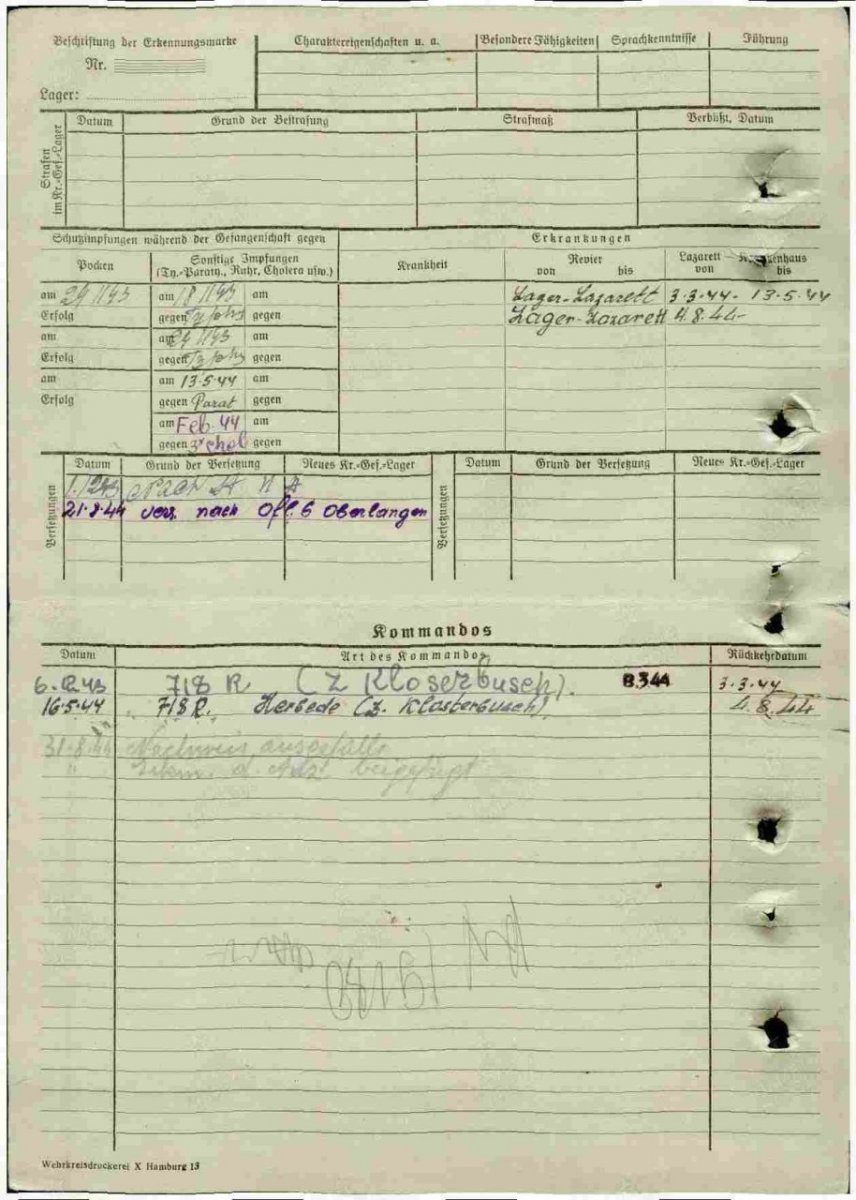 Beschriftung der Erkennungsmarke
Nr.
Lager:
Charaktereigenschaften u. a.
Besondere Fähigkeiten
Sprachkenntnisse
Führung
Strafen im Kr.-Gef.-Lager
Datum
Grund der Bestrafung
Strafmaß
Verbüßt, Datum
Schutzimpfungen während der Gefangenschaft gegen
Erkrankungen
Pocken
Sonstige Impfungen
(Ty.-Paraty., Ruhr, Cholera usw.)
Krankheit
Revier
von bis
Lazarett – Krankenhaus
von bis
am am am
Erfolg gegen gegen
am am am
Erfolg gegen gegen
am am 13.5.44 am
Erfolg gegen Parat gegen
am Feb. 44 am
gegen gegen
Lager-Lazarett 3.3.44- 13.5.44
Lager-Lazarett 4.8.44-
Versetzungen
Datum Grund der Versetzung Neues Kr.-Gef.-Lager
Nach
21.8.44 vers. nach Off. 6 Oberlangen
Versetzungen
Datum Grund der Versetzung Neues Kr.-Gef.-Lager
Kommandos
Datum Art des Kommandos Rückkehrdatum
6.12.43 718 R (Z Kloserbusch). 8.344 3.3.44
16.5.44 718 R. Herbede (Z. Klosterbusch) 4.8.44
31.8.44 Nachweis
beigefügt
Wehrkreisdruckerei X Hamburg 13